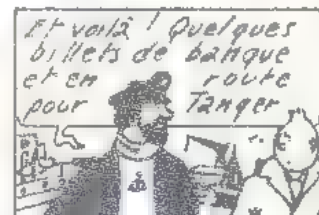 Et voilà ! Quelques
billets de banque
et en route
pour Tanger